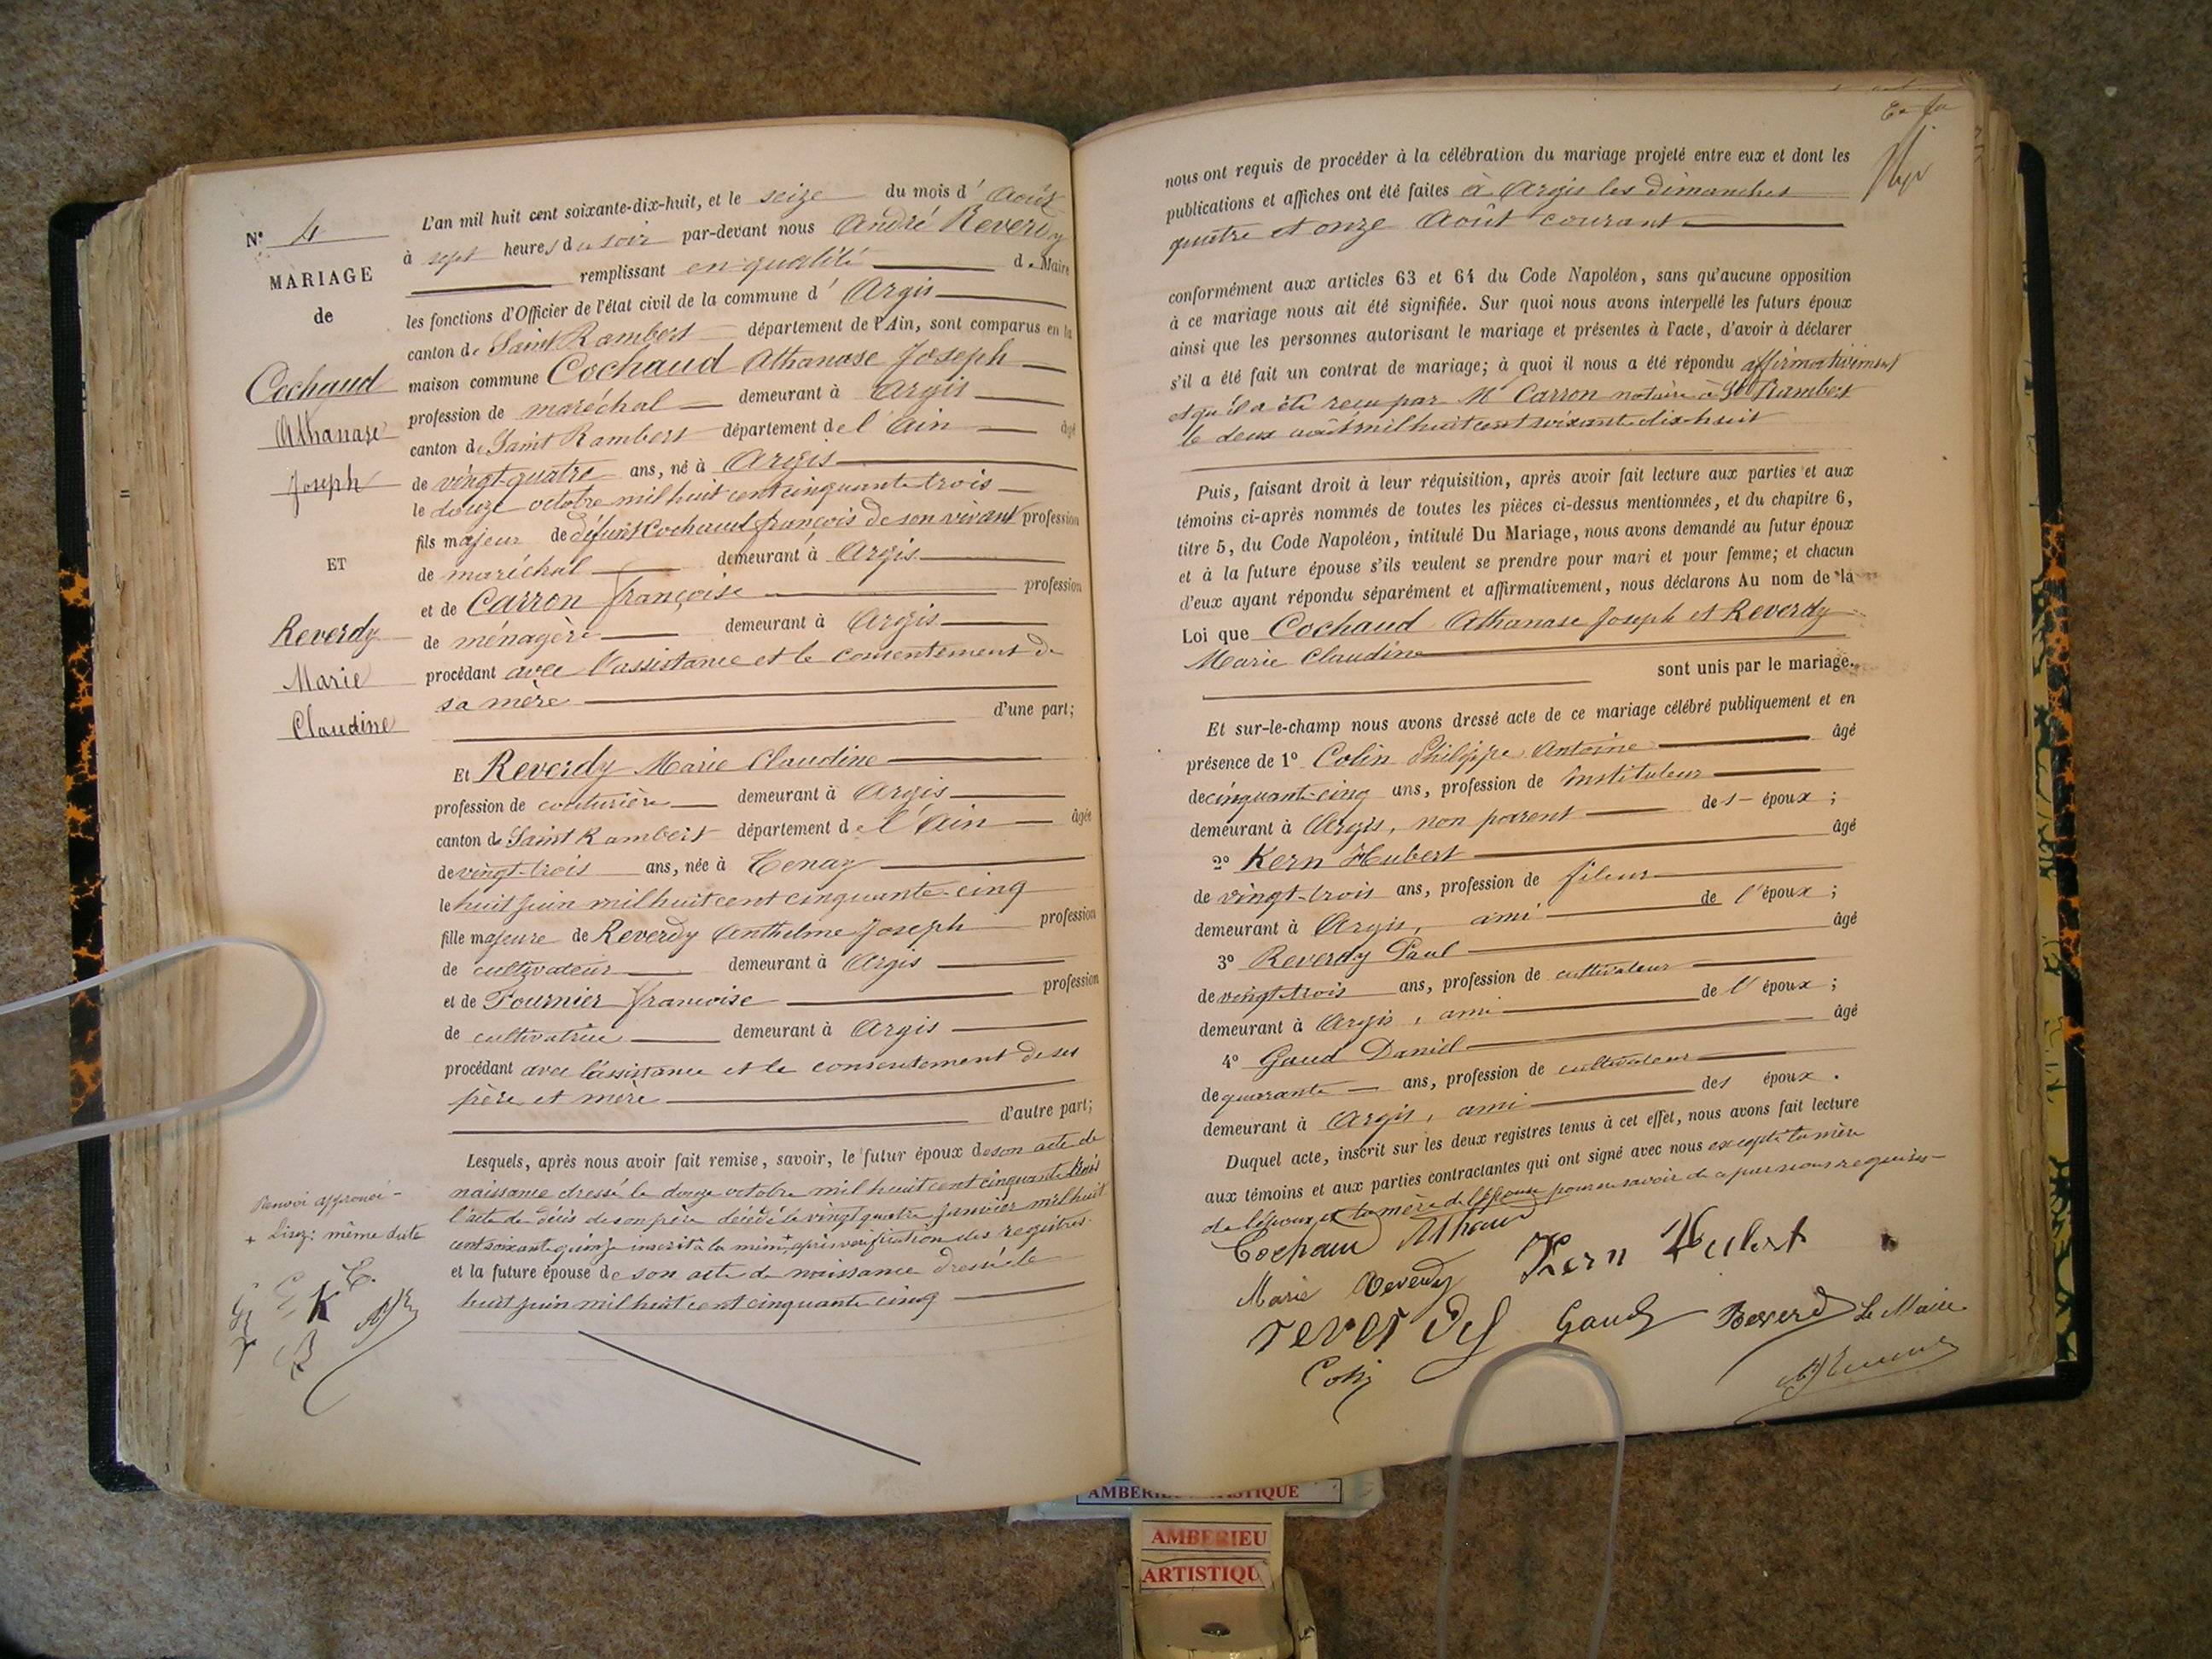 N° 4
MARIAGE
de
Cochaud
Athanase
Joseph
ET
Reverdy
Marie
Claudine
L'an mil huit cent soixante-dix-huit, et le seize du mois d' Août
à sept heures du soir par-devant nous André Reverdy
remplissant en qualité de Maire
les fonctions d'Officier de l'état civil de la commune d' Argis
canton de Saint Rambert département de l'Ain, sont comparus en la
maison commune Cochaud Athanase Joseph
profession de maréchal demeurant à Argis
canton de Saint Rambert département de l'Ain âgé
de vingt-quatre ans, né à Argis
le douze octobre mil huit cent cinquante trois
fils majeur de défunt Cochaud françois de son vivant profession
de maréchal demeurant à Argis
et de Carron françoise profession
de ménagère demeurant à Argis
procédant avec l'assistance et le consentement de
sa mère
d'une part;
Et Reverdy Marie Claudine
profession de couturière demeurant à Argis
canton de Saint Rambert département de l'Ain âgée
de vingt-trois ans, née à Tenay
le huit juin mil huit cent cinquante-cinq
fille majeure de Reverdy Anthelme Joseph profession
de cultivateur demeurant à Argis
et de Fournier francoise profession
de cultivatrice demeurant à Argis
procédant avec l'assistance et le consentement de ses
père et mère
d'autre part;
Lesquels, après nous avoir fait remise, savoir, le futur époux de son acte de
naissance dressé le douze octobre mil huit cent cinquante trois
l'acte de décès de son père décédé le vingt quatre janvier mil huit
cent soixante quinze inscrit à la même + après vérification des registres
et la future épouse de son acte de naissance dressé le
huit juin mil huit cent cinquante cinq
Renvoi approuvé
+ Lisez: même date
K
nous ont requis de procéder à la célébration du mariage projeté entre eux et dont les
publications et affiches ont été faites à Argis les dimanches
quatre et onze Août courant
conformément aux articles 63 et 64 du Code Napoléon, sans qu'aucune opposition
à ce mariage nous ait été signifiée. Sur quoi nous avons interpellé les futurs époux
ainsi que les personnes autorisant le mariage et présentes à l'acte, d'avoir à déclarer
s'il a été fait un contrat de mariage; à quoi il nous a été répondu affirmativement
et qu'il a été reçu par Me Carron notaire à St Rambert
le deux août mil huit cent soixante dix-huit
Puis, faisant droit à leur réquisition, après avoir fait lecture aux parties et aux
témoins ci-après nommés de toutes les pièces ci-dessus mentionnées, et du chapitre 6,
titre 5, du Code Napoléon, intitulé Du Mariage, nous avons demandé au futur époux
et à la future épouse s'ils veulent se prendre pour mari et pour femme; et chacun
d'eux ayant répondu séparément et affirmativement, nous déclarons Au nom de la
Loi que Cochaud Athanase Joseph et Reverdy
Marie Claudine
sont unis par le mariage.
Et sur-le-champ nous avons dressé acte de ce mariage célébré publiquement et en
présence de 1° Colin Philippe Antoine âgé
de cinquante-cinq ans, profession de instituteur
demeurant à Argis, non parent des époux ;
2° Kern Hubert âgé
de vingt-trois ans, profession de fileur
demeurant à Argis, ami de l'époux ;
3° Reverdy Paul âgé
de vingt trois ans, profession de cultivateur
demeurant à Argis, ami de l'époux ;
4° Gaud Daniel âgé
de quarante ans, profession de cultivateur
demeurant à Argis, ami des époux.
Duquel acte, inscrit sur les deux registres tenus à cet effet, nous avons fait lecture
aux témoins et aux parties contractantes qui ont signé avec nous excepté la mère
de l'époux et la mère de l'épouse pour ne savoir de ce par nous requises
Cochaud Athanase
Kern Hubert
Marie Reverdy
reverdy Gaud Reverdy Le Maire
Colin
AMBERIEU ARTISTIQUE
AMBERIEU
ARTISTIQU